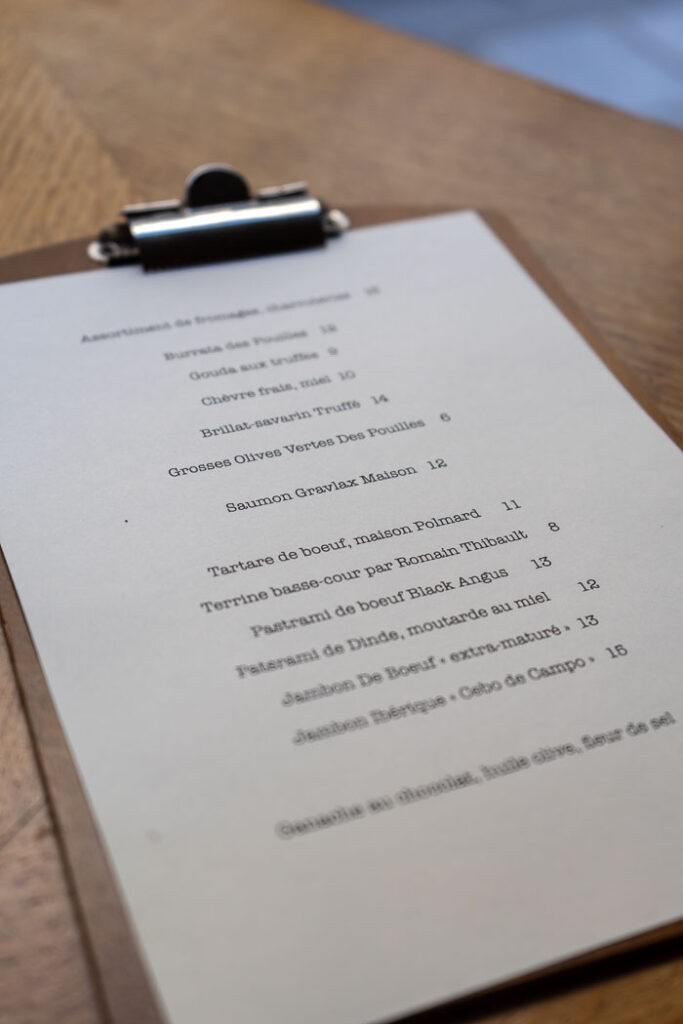 Assortiment de fromages, charcuteries
Burrata des Pouilles 12
Gouda aux truffes 9
Chèvre frais, miel 10
Brillat-savarin Truffé 14
Grosses Olives Vertes Des Pouilles 6
Saumon Gravlax Maison 12
Tartare de boeuf, maison Polmard 11
Terrine basse-cour par Romain Thibault 8
Pastrami de boeuf Black Angus 13
de Dinde, moutarde au miel 12
Jambon De Boeuf « extra-maturé » 13
Jambon Ibérique « Cebo de Campo » 15
Ganache au chocolat, huile olive, fleur de sel